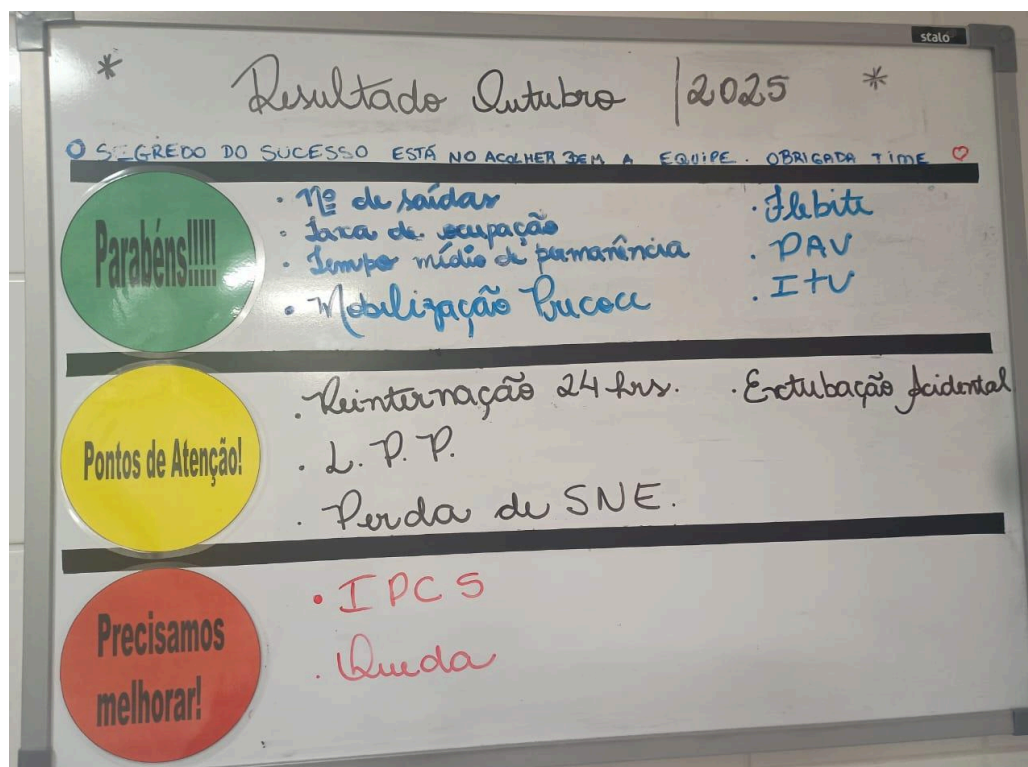 stalo
* Resultado Outubro | 2025 *
O SEGREDO DO SUCESSO ESTÁ NO ACOLHER BEM A EQUIPE. OBRIGADA TIME ♡
Parabéns!!!!!
· Nº de saídas
· Taxa de ocupação
· Tempo médio de permanência
· Mobilização Precoce
· Flebite
· PAV
· ITU
Pontos de Atenção!
· Reinternação 24 hrs.
· L.P.P.
· Perda de SNE.
· Extubação Acidental
Precisamos
melhorar!
· IPCS
· Queda